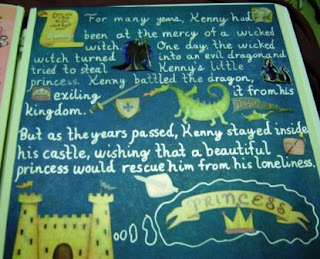 For many years, Kenny had
been at the mercy of a wicked
witch. One day, the wicked
witch turned into an evil dragon and
tried to steal Kenny's little
princess. Kenny battled the dragon,
exiling it from his
kingdom.
But as the years passed, Kenny stayed inside
his castle, wishing that a beautiful
princess would rescue him from his loneliness.
PRINCESS